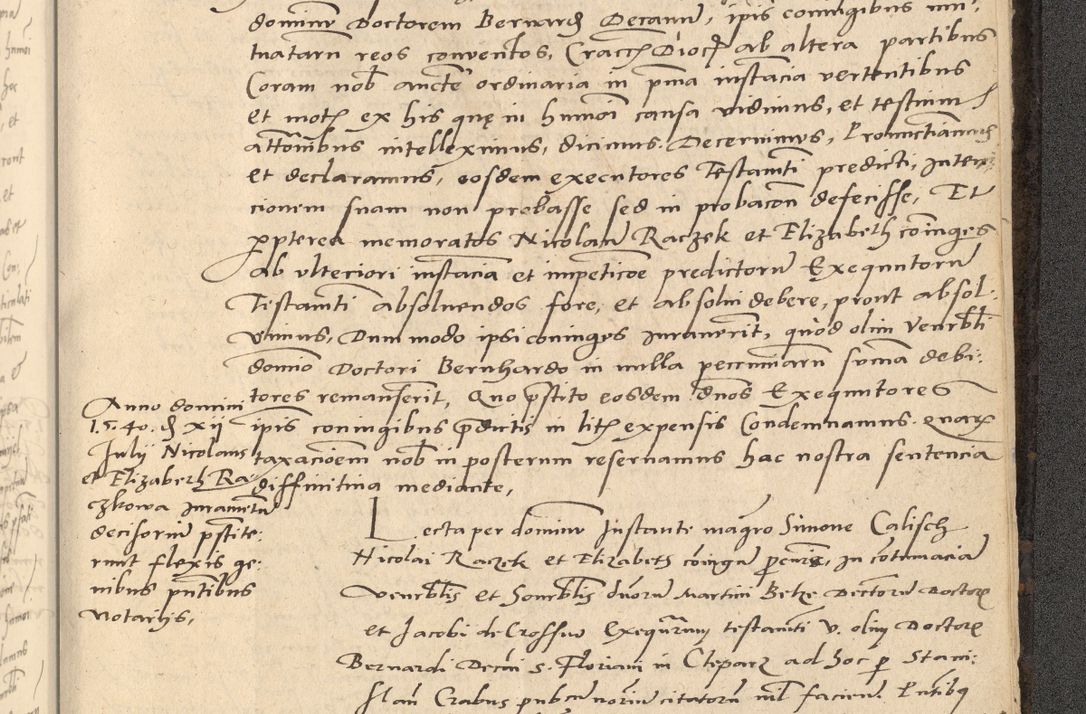 dominum Doctorem Bernardum Decanum, ipis coniugibus mu-
tuatam reos conventos, Craccen Dioc ab altera partibus
Coram nob aucte ordinaria in pma instacia vertentibus
et motis ex his quę in humoi causa vidimus, et testium
attonibus intelleximus, dicimus. Decernimus, Pronuctiamus
et declaramus, eosdem executores Testamti predicti, Inten-
cionem suam non probasse sed in probacon defecisse, Et
ppterea memoratos Nicolaum Raczek et Elizabeth coiuges
ab vlteriori instacia et impeticoe predictorum Exequutorum
Testamti absoluendos fore, et absolui debere, prout absol-
uimus, Dummodo ipsi coniuges iurauerit, quod olim Venerbli
domino Doctori Bernhardo in nulla pecuniarum summa debi-
tores remanserit, Quo pstito eosdem dnos Exequutores
ipis coniugibus pdictis in litis expensis Condemnamus. quarum
taxacioem nob in posterum reseruamus hac nostra sentencia
diffinitiua mediante,
Anno domini
1540. d xii
Julij Nicolaus
et Elizabeth Ra-
czkowa iuramentum
decisorium pstite-
runt flexis ge-
nibus pntibus
Notarijs,
Lecta per dominum Instante magro Simone Calisch
Nicolai Raczek et Elizabeth coiugum pcuris, in cotumaciam
venerblis et honorblis dnorum Martini Belze Decretorum Doctoris
et Jacobi de Crossno Exequutorum testamti v. olim Doctoris
Bernardi Decani S. Floriani in Clepars ad hoc p Stani-
slaum Crabus publicum notarium citatorum nil facien Pntibus